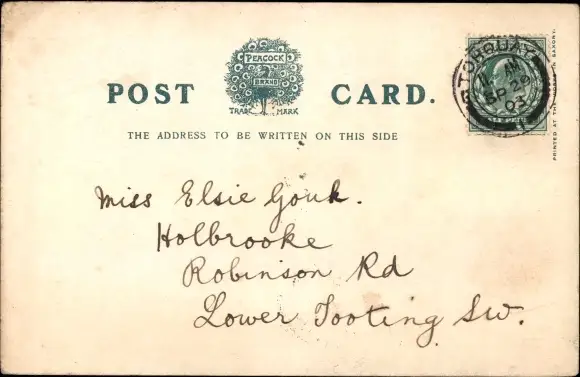 POST CARD.
PEACOCK
BRAND
TRADE MARK
THE ADDRESS TO BE WRITTEN ON THIS SIDE
TORQUAY
11 AM
SP 29
03
PRINTED AT THE
SAXONY.
Miss Elsie Gouk.
Holbrooke
Robinson Rd
Lower Tooting SW.